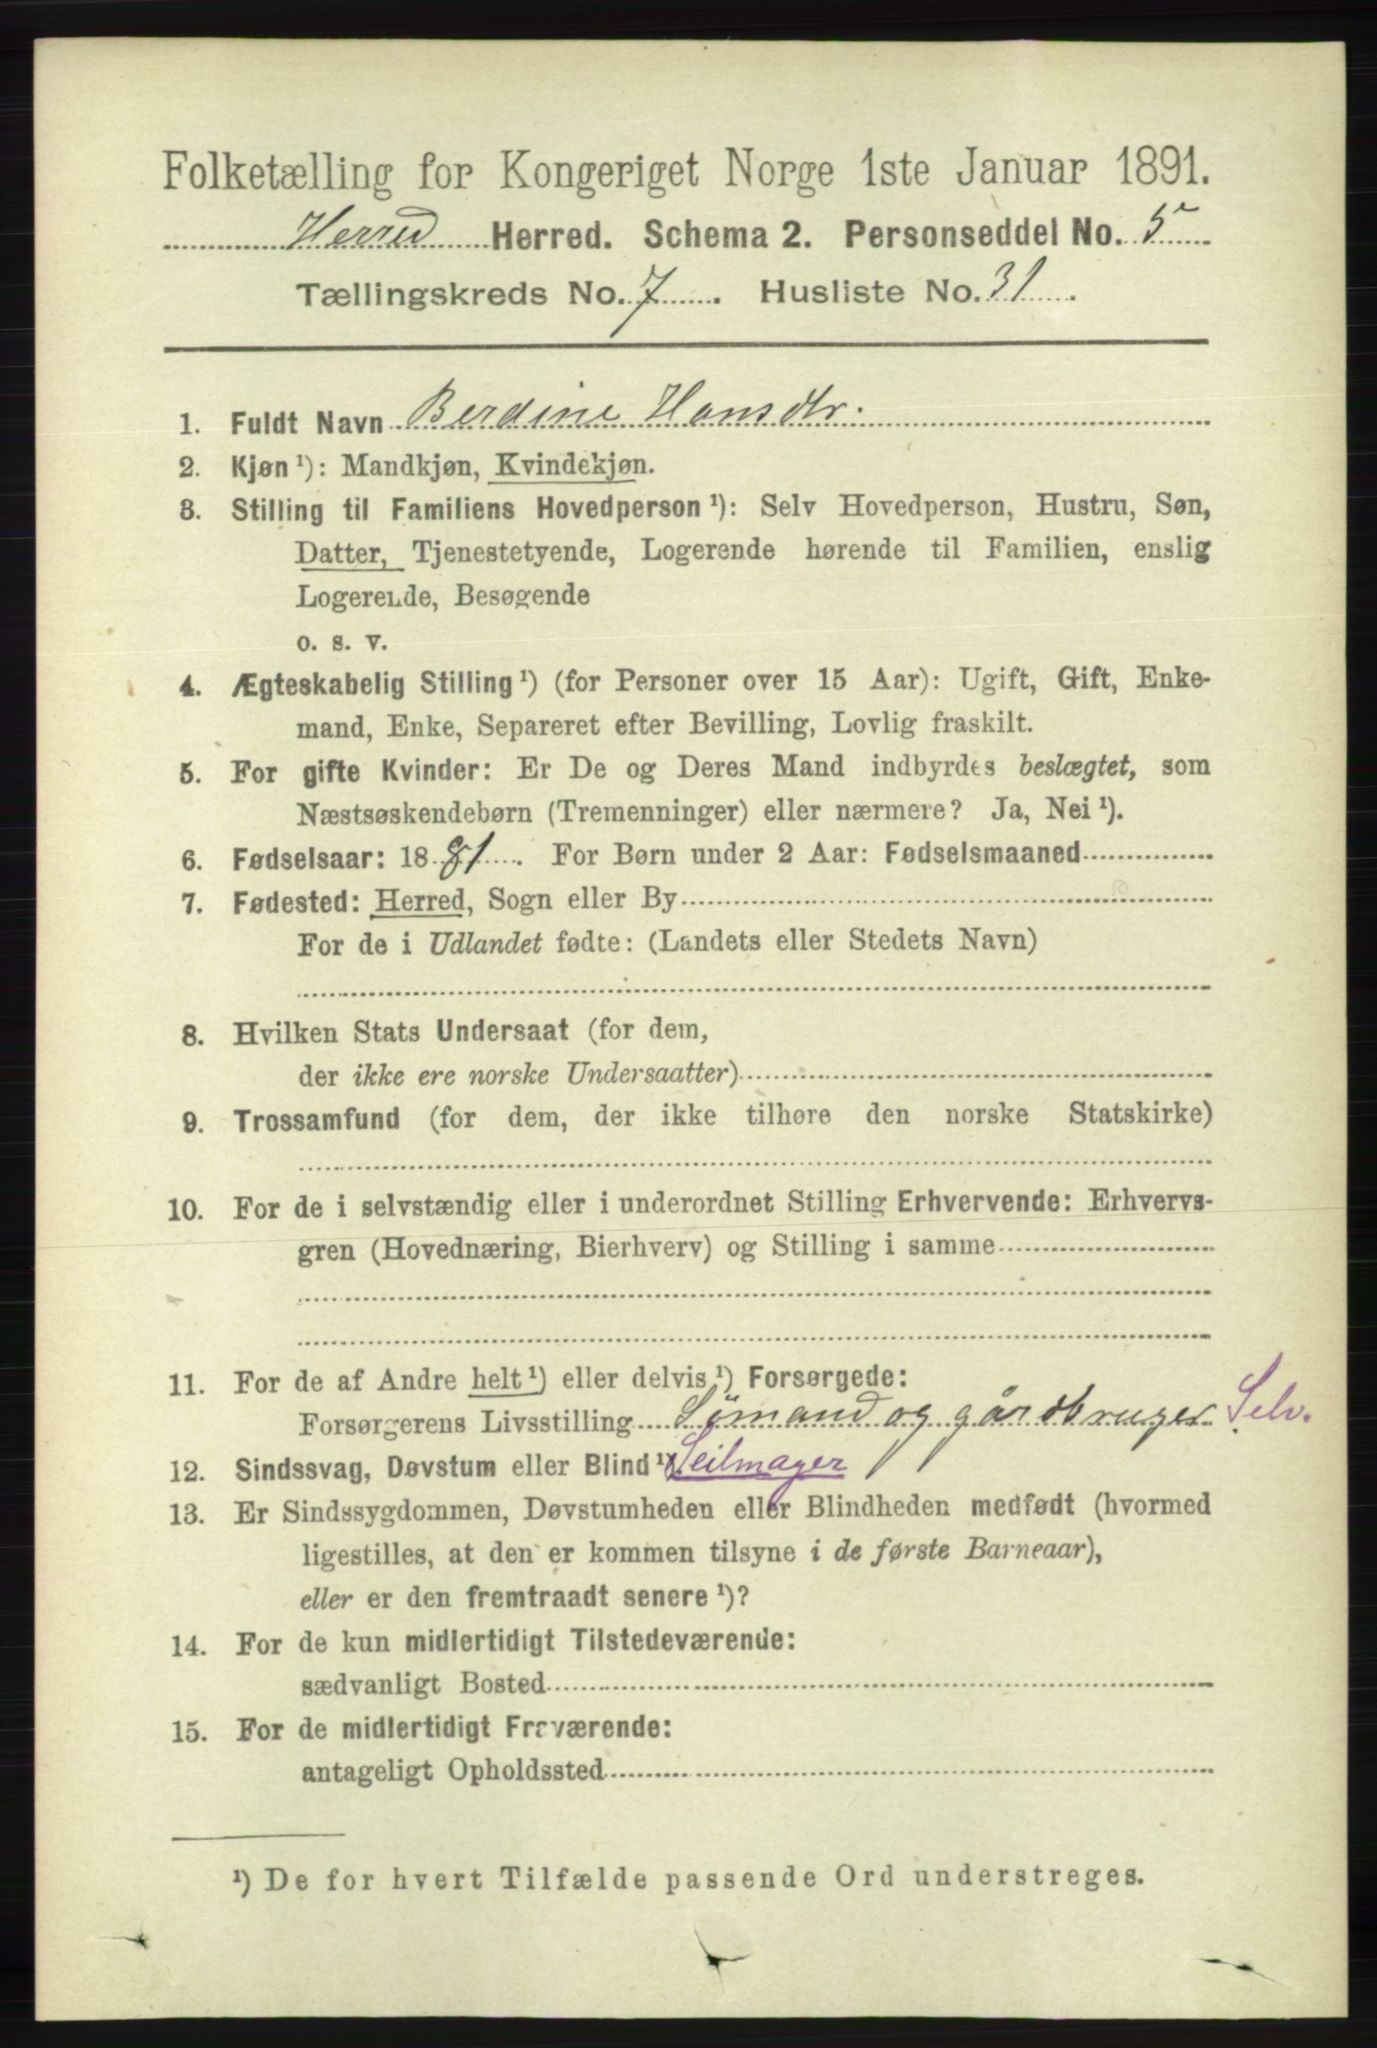 Folketælling for Kongeriget Norge 1ste Januar 1891.
Herred Herred. Schema 2. Personseddel No. 5
Tællingskreds No. 7. Husliste No. 31.
1. Fuldt Navn Berdine Hansdtr.
2. Kjøn ¹): Mandkjøn, Kvindekjøn.
3. Stilling til Familiens Hovedperson ¹): Selv Hovedperson, Hustru, Søn,
Datter, Tjenestetyende, Logerende hørende til Familien, enslig
Logerende, Besøgende
o. s. v.
4. Ægteskabelig Stilling ¹) (for Personer over 15 Aar): Ugift, Gift, Enke-
mand, Enke, Separeret efter Bevilling, Lovlig fraskilt.
5. For gifte Kvinder: Er De og Deres Mand indbyrdes beslægtet, som
Næstsøskendebørn (Tremenninger) eller nærmere? Ja, Nei ¹).
6. Fødselsaar: 18 81. For Børn under 2 Aar: Fødselsmaaned
7. Fødested: Herred, Sogn eller By
For de i Udlandet fødte: (Landets eller Stedets Navn)
8. Hvilken Stats Undersaat (for dem,
der ikke ere norske Undersaatter)
9. Trossamfund (for dem, der ikke tilhøre den norske Statskirke)
10. For de i selvstændig eller i underordnet Stilling Erhvervende: Erhvervs-
gren (Hovednæring, Bierhverv) og Stilling i samme
11. For de af Andre helt ¹) eller delvis ¹) Forsørgede:
Forsørgerens Livsstilling Sømand og gårdbruger Selv.
12. Sindssvag, Døvstum eller Blind ¹) Seilmager
13. Er Sindssygdommen, Døvstumheden eller Blindheden medfødt (hvormed
ligestilles, at den er kommen tilsyne i de første Barneaar),
eller er den fremtraadt senere ¹)?
14. For de kun midlertidigt Tilstedeværende:
sædvanligt Bosted
15. For de midlertidigt Fraværende:
antageligt Opholdssted
¹) De for hvert Tilfælde passende Ord understreges.